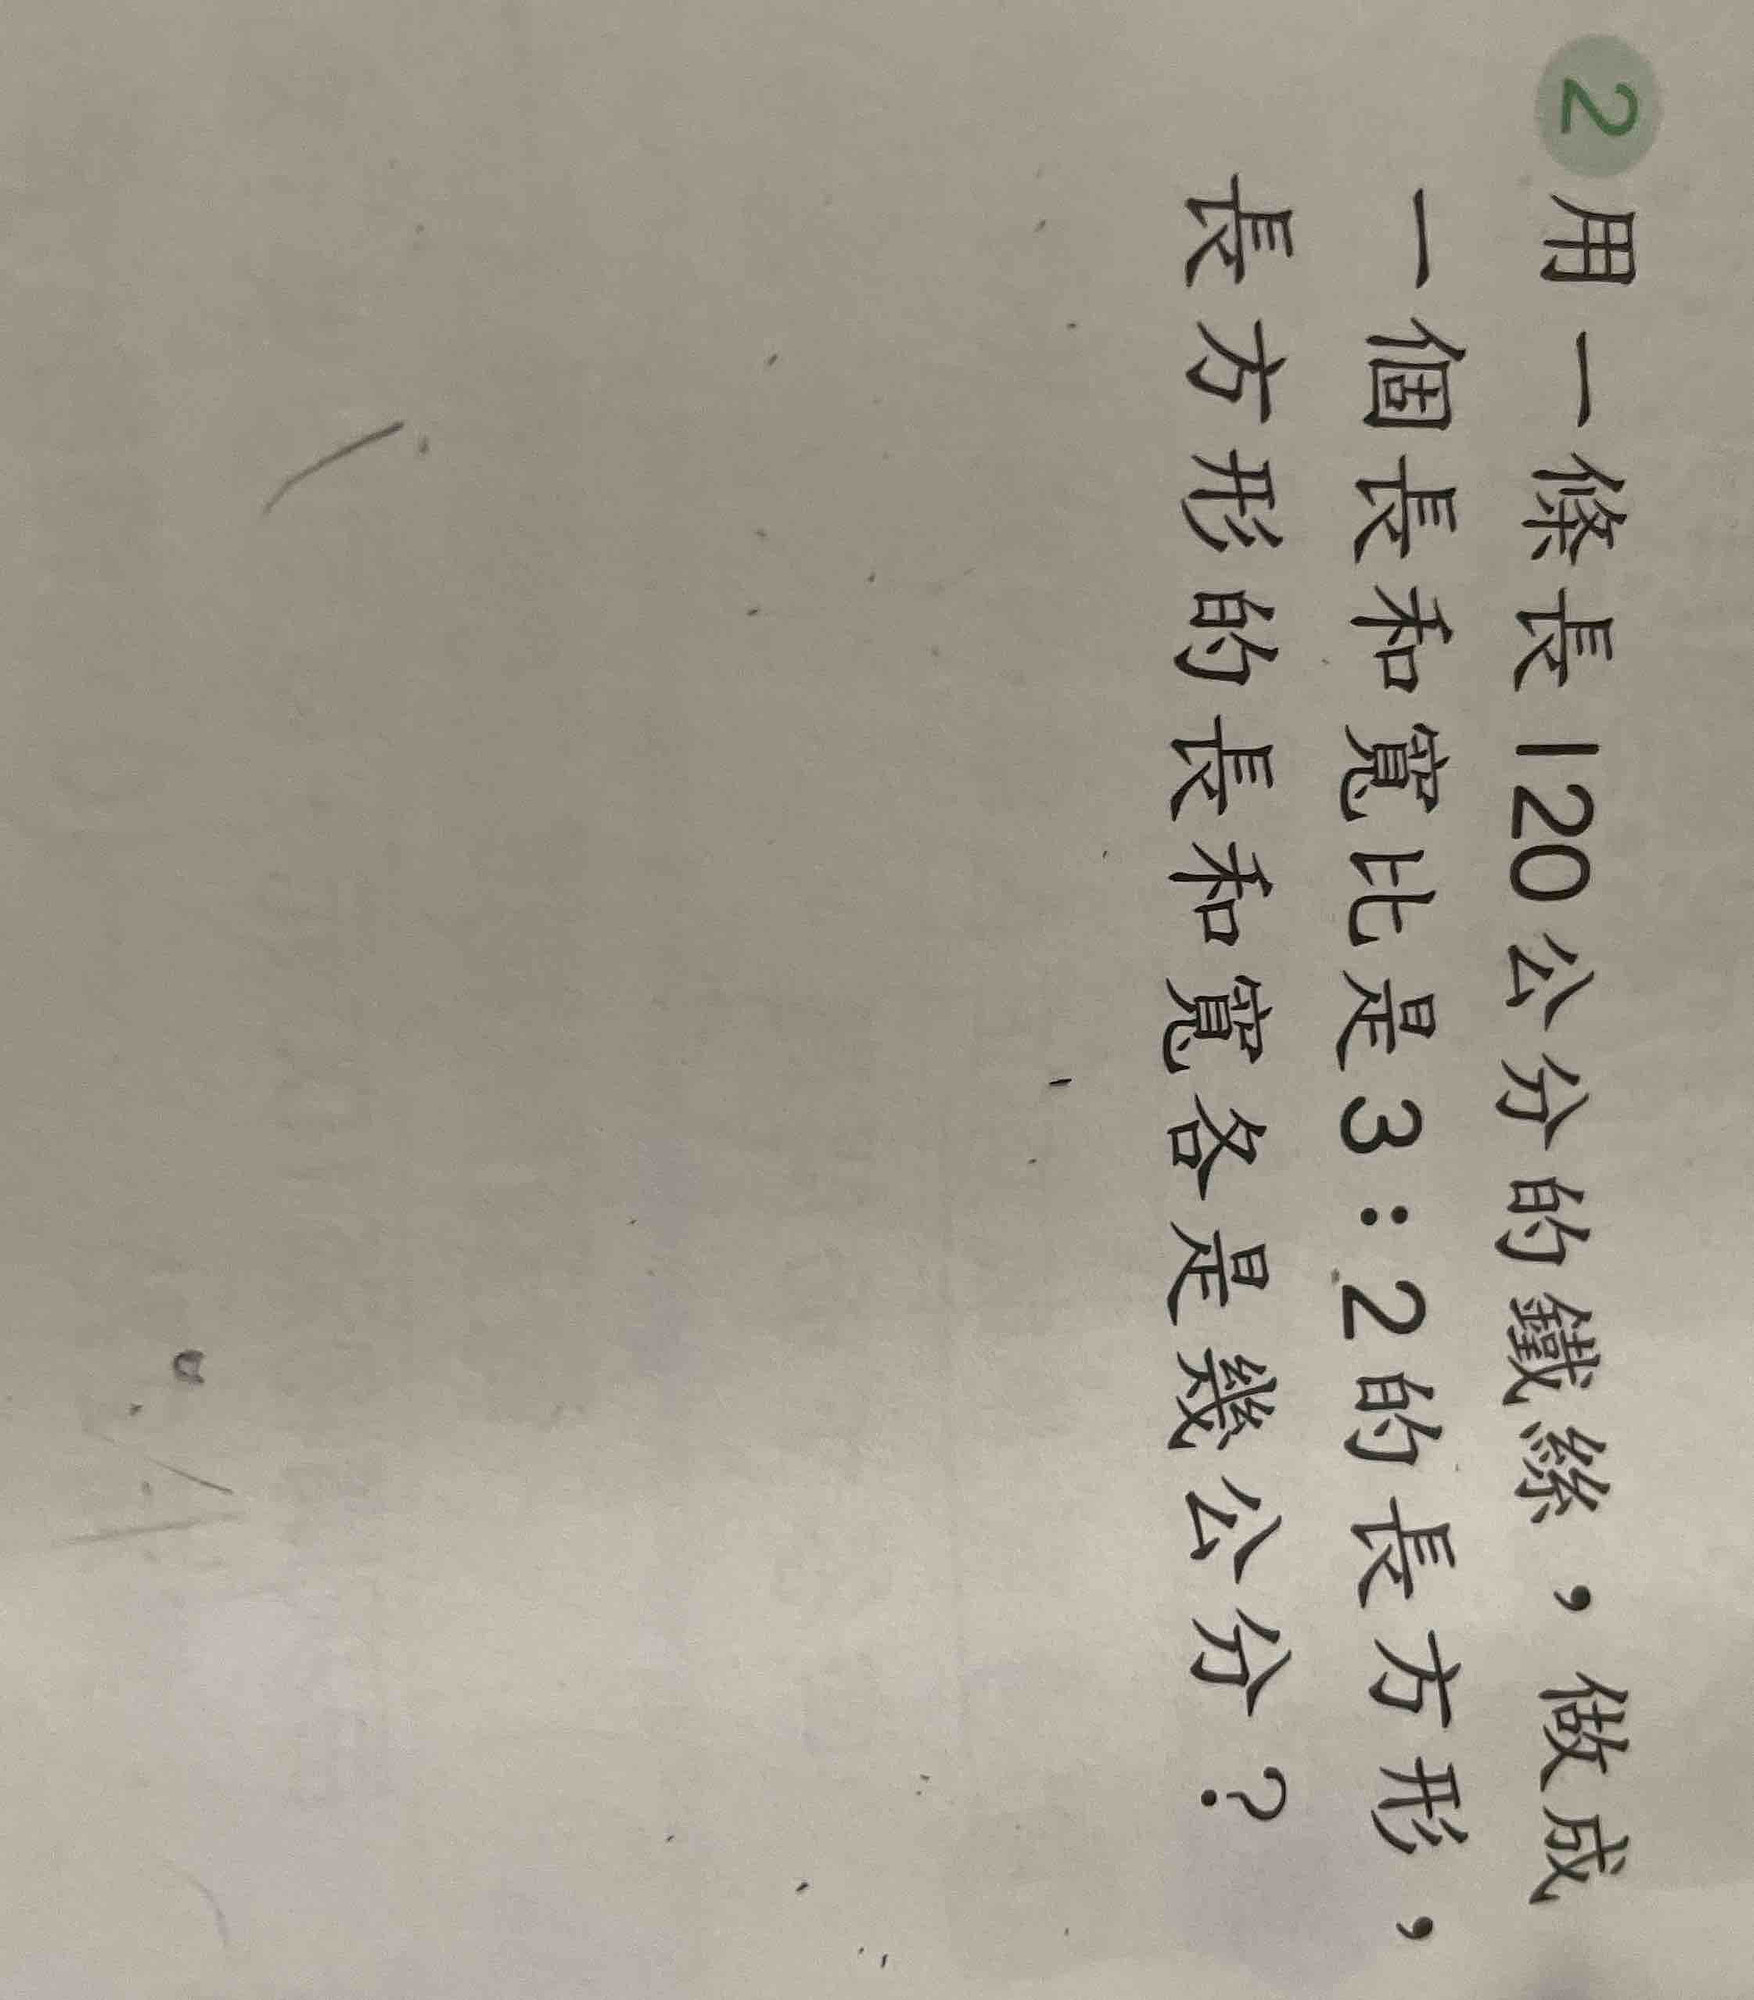 2 用一條長120公分的鐵絲，做成
一個長和寬比是3：2的長方形，
長方形的長和寬各是幾公分？